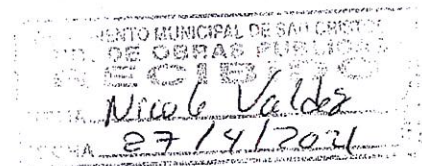 IENTO MUNICIPAL DE SAN CRIST
DE OBRAS PUBLICAS
RECIBIDO
Nicole Valdez
27/4/2021